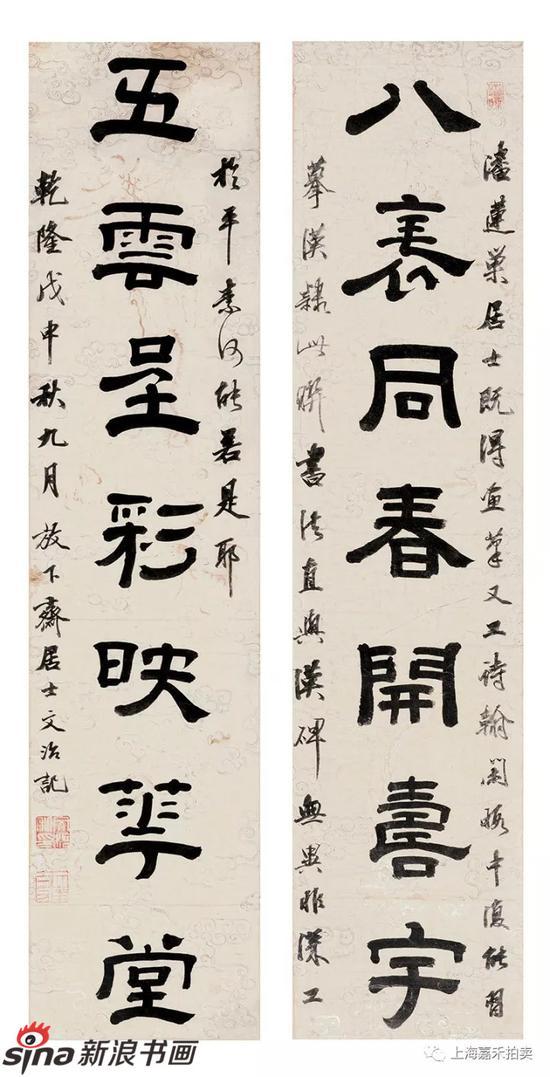 潘蓮巢居士既得畫筆又工詩翰閒暇中復能習
八袠同春開壽宇
摹漢隸此聯書法直與漢碑無異非深工
於平素何能若是耶
五雲呈彩映華堂
乾隆戊申秋九月 放下齋居士文治記
sina新浪书画
上海嘉禾拍卖